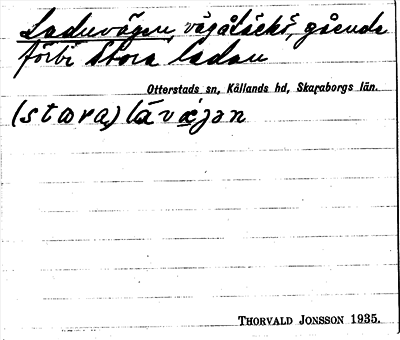 Laduvägen, väg åt säckö, gående
förbi Stora ladan
Otterstads sn, Kållands hd, Skaraborgs län.
(stora) lāvǽjən
THORVALD JONSSON 1935.